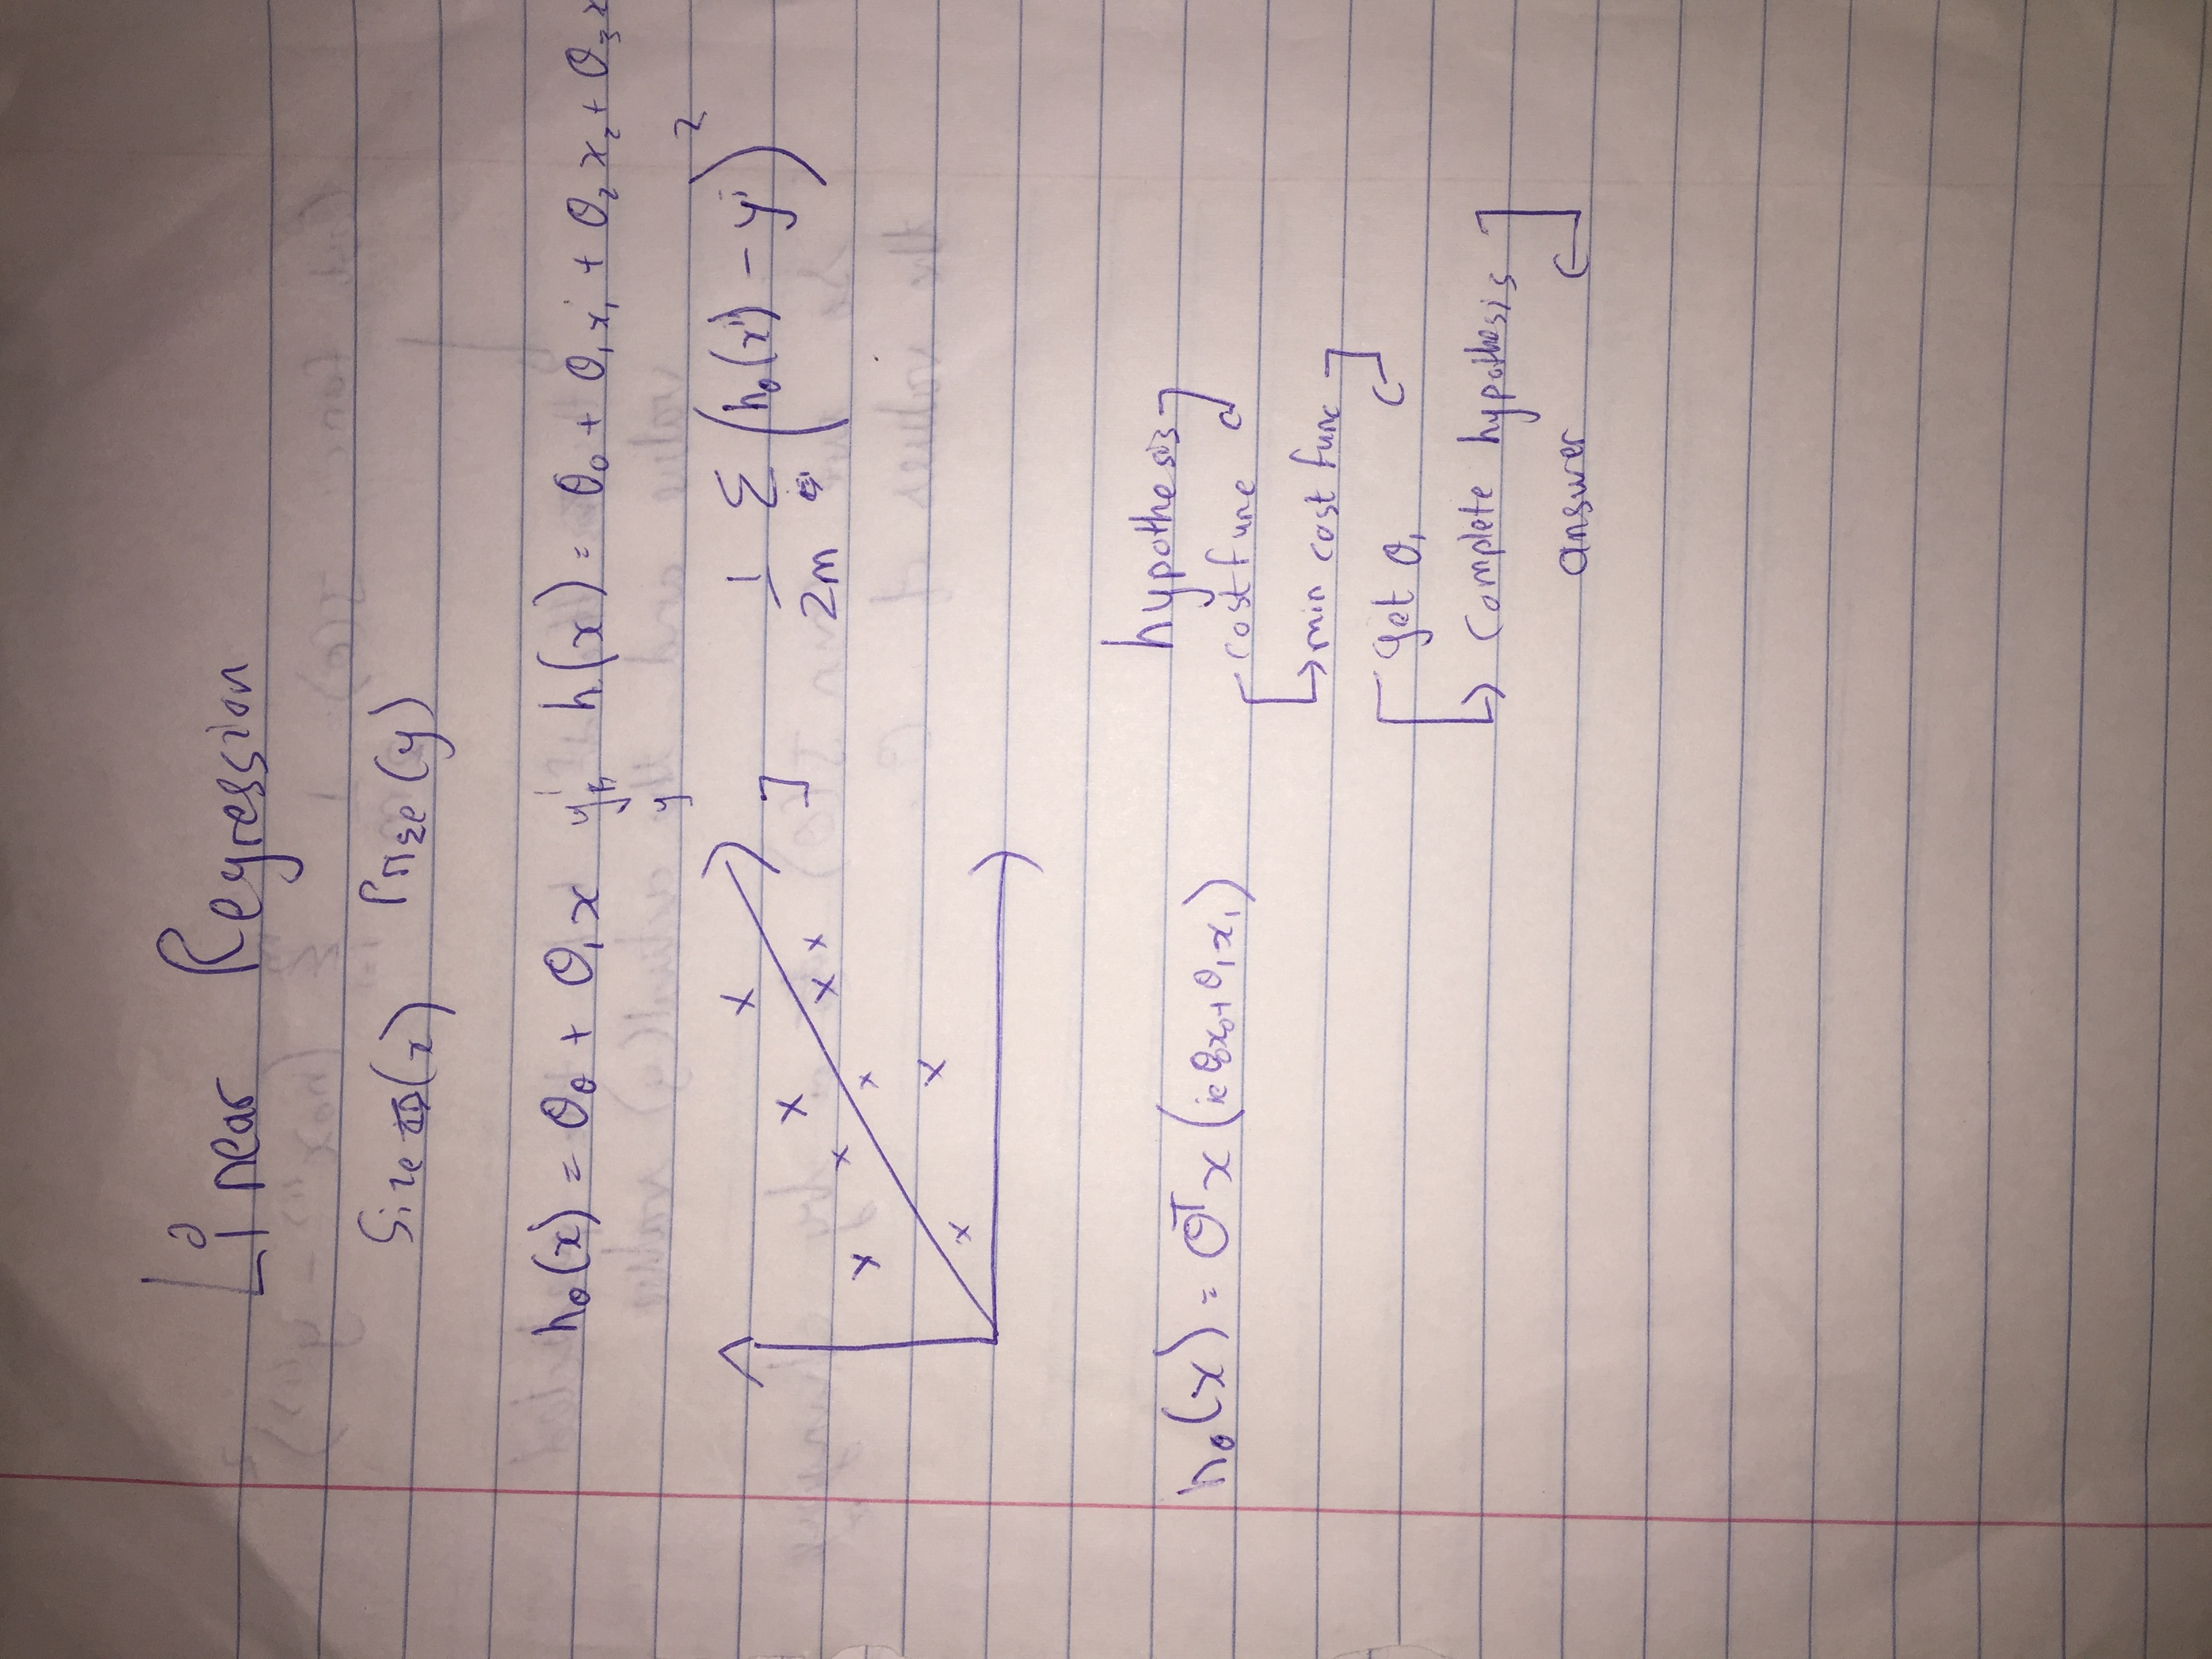 Linear Regression
Size (x) Prize (y)
hθ(x) = θ₀ + θ₁x y h(x) = θ₀ + θ₁x₁ + θ₂x₂ + θ₃x
y
1/2m Σ (hθ(xⁱ) - yⁱ)²
hθ(x) = θᵀx (ie θ₀x₀ + θ₁x₁)
hypothesis
cost func
min cost func
get θ₁
complete hypothesis
answer